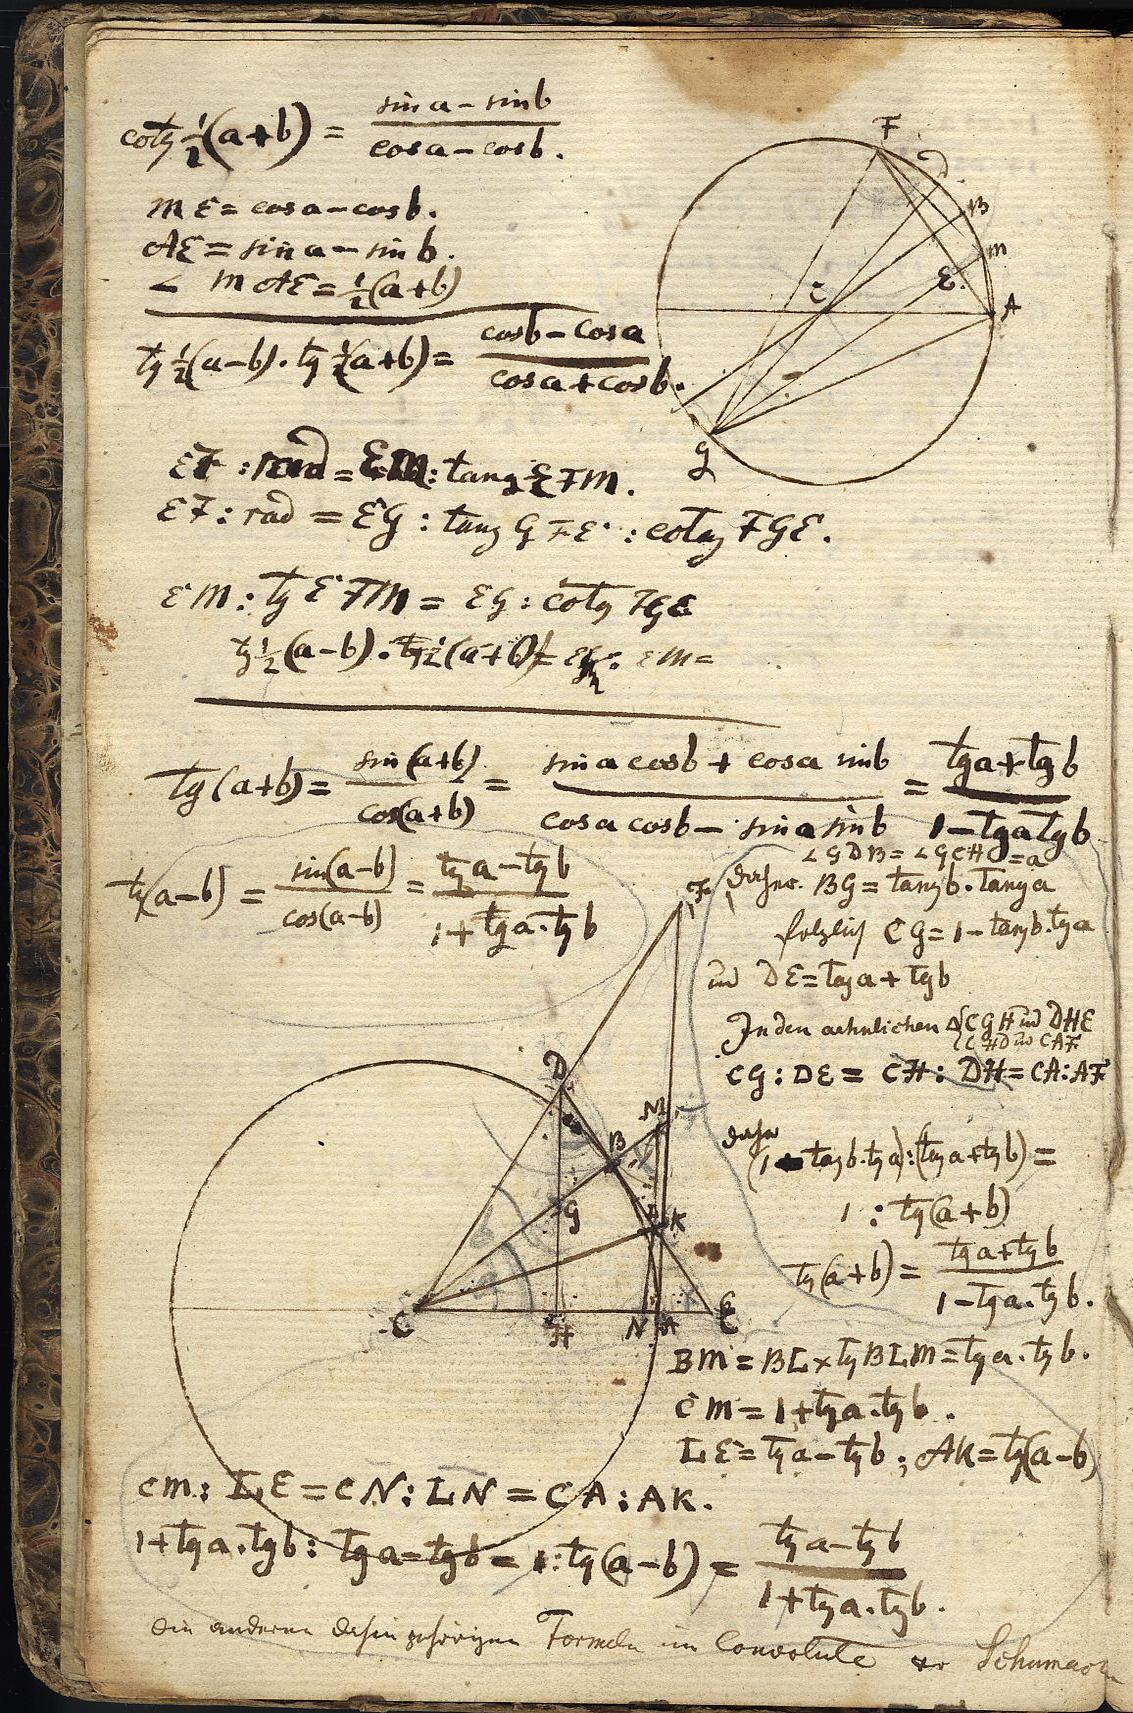 cotg ½(a+b) = (sin a − sin b)/(cos a − cos b).
ME = cos a − cos b.
AE = sin a − sin b.
∠ MAE = ½(a+b)
tg ½(a−b) · tg ½(a+b) = (cos b − cos a)/(cos a + cos b).
F
D
B
M
E
A
C
G
EF : rad = EM : tang EFM.
EF : rad = EG : tang GFE : cotg FGE.
EM : tg EFM = EG : cotg FGE
tg ½(a−b) · tg ½(a+b) = : EM =
tg (a+b) = sin(a+b)/cos(a+b) = (sin a cos b + cos a sin b)/(cos a cos b − sin a sin b) = (tg a + tg b)/(1 − tg a tg b)
tg(a−b) = sin(a−b)/cos(a−b) = (tg a − tg b)/(1 + tg a · tg b)
∠ GDB = ∠ GCH = a
daher BG = tang b · tang a
folglich CG = 1 − tang b · tg a
und DE = tang a + tg b
In den aehnlichen Δ CGH und DHE
CHD und CAF
CG : DE = CH : DH = CA : AF
daher
(1 − tang b · tg a) : (tang a + tg b) =
1 : tg(a+b)
tg(a+b) = (tg a + tg b)/(1 − tg a · tg b).
F
D
M
B
G
L
K
C
H
N
A
E
BM = BL × tg BLM = tg a · tg b.
CM = 1 + tg a · tg b.
LE = tg a − tg b ; AK = tg(a−b)
CM : LE = CN : LN = CA : AK.
1 + tg a · tg b : tg a − tg b = 1 : tg(a−b) = (tg a − tg b)/(1 + tg a · tg b).
Die anderen dahin gehörigen Formeln im Convolute Schumacher